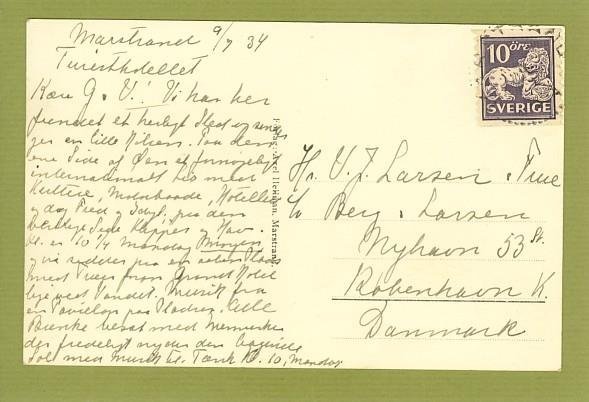 Marstrand 9/7 34
Turisthotellet
Kære G. V.! Vi har her
fundet et herligt Sted og sender
jer en lille Hilsen. Paa den
ene Side af Øen et fornøjeligt
internationalt Liv med
Kuttere, Motorbaade, Hoteller
og dog Fred og Idyl, paa den
Side Klipper og Hav.
Kl. er 10 1/4 Mandag Morgen
og vi sidder paa en Plads
med fra Grand Hotel
lige ved Vandet. Musik fra
en Pavillon paa Pladsen. Alle
Bænke besat med Mennesker
der fredeligt nyder den
Sol med Musik til. Tænk Kl. 10, Mandag
Förlag: Axel Hellman, Marstrand
10 ÖRE
SVERIGE
Hr. V. J. Larsen & Frue
c/o Berg & Larsen
Nyhavn 53 St.
København K.
Danmark